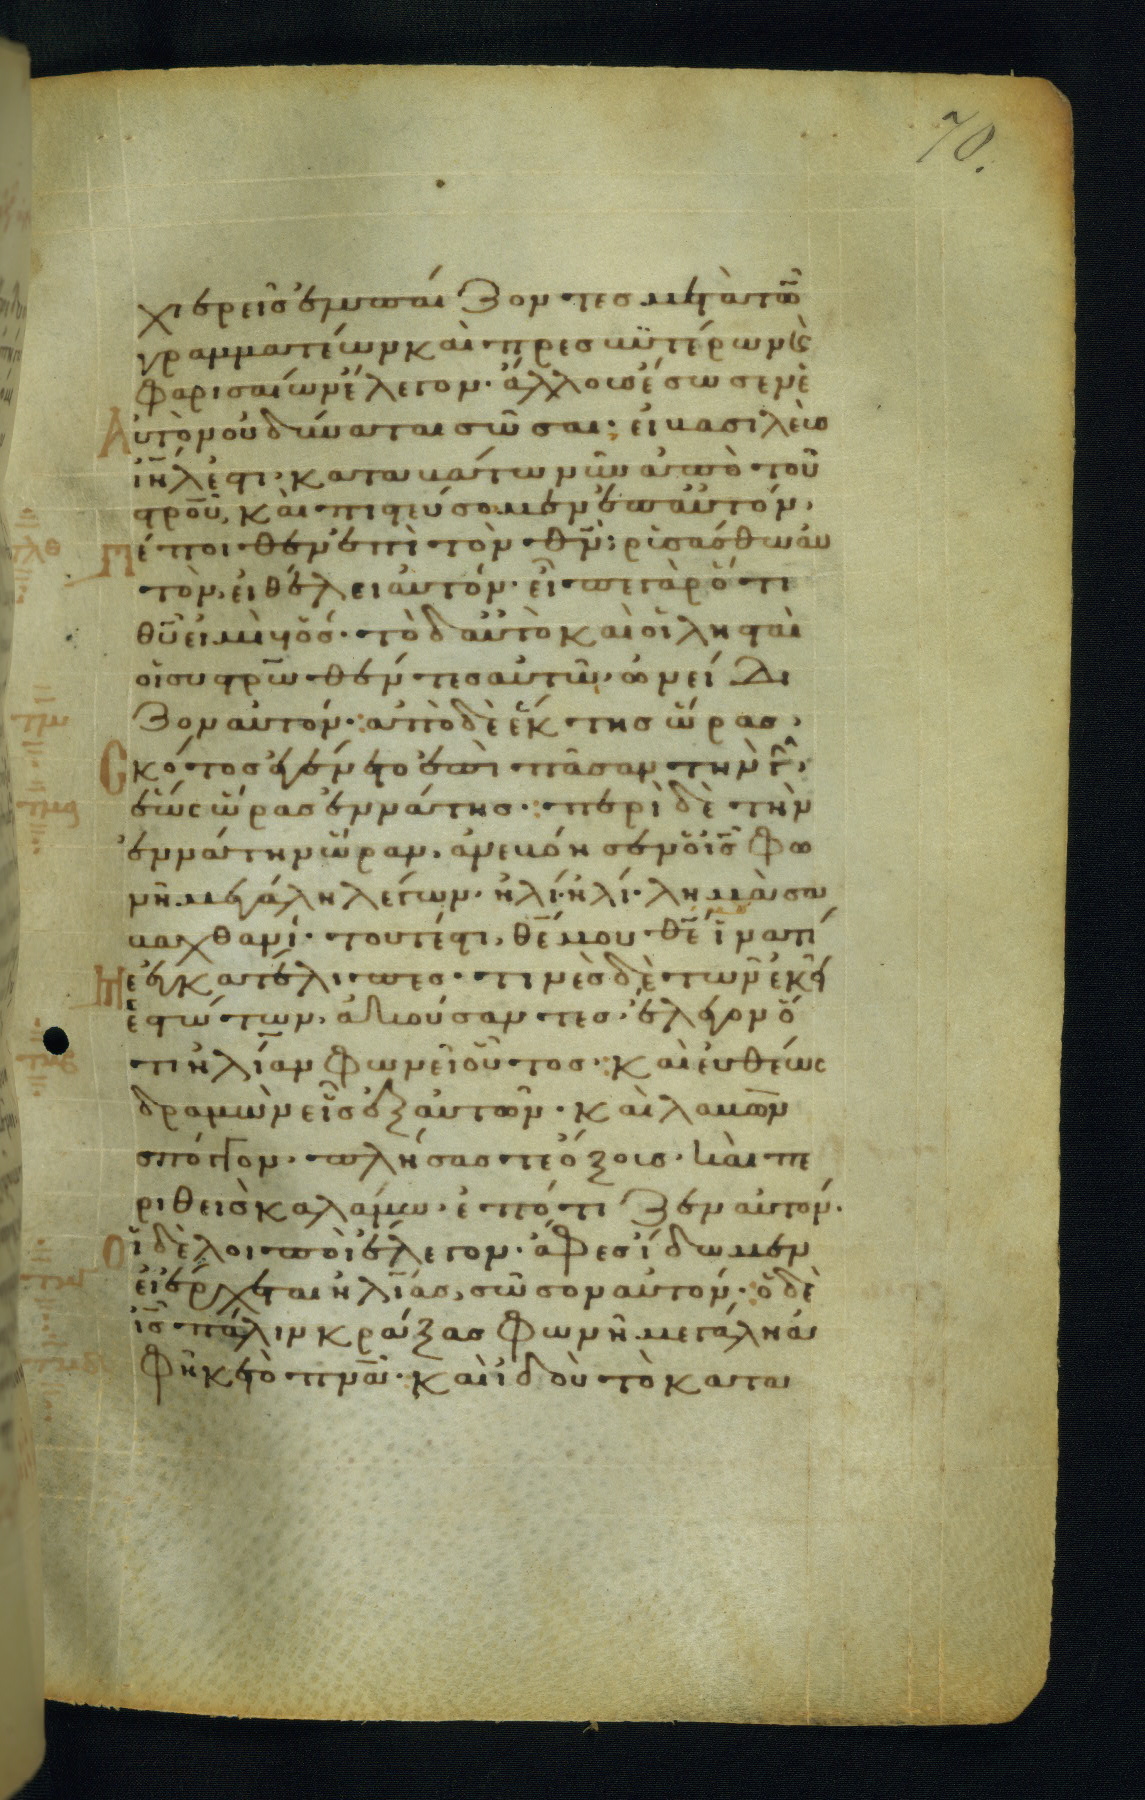 70.
χιερεῖς ἐμπαίζοντες μετὰ τῶν
γραμματέων καὶ πρεσβυτέρων κ(αὶ)
φαρισαίων ἔλεγον· ἄλλους ἔσωσεν ἑ
Αυτὸν οὐ δύναται σῶσαι· εἰ βασιλεὺς
ιηλ ἐστι· καταβάτω νῦν ἀπὸ τοῦ
στρου, καὶ πιστεύσομεν ἐπ αὐτόν·
Πέποιθεν ἐπὶ τὸν θν· ρυσάσθω αὐ
τὸν, εἰ θέλει αὐτόν· εἶπε γὰρ ὅτι
θυ εἰμὶ υἱός· τὸ δ αὐτὸ καὶ οἱ λησταὶ
οἱ συστρωθέντες αὐτῶ, ὠνείδι
ζον αὐτόν· ἀπὸ δὲ ἕκτης ὥρας,
Cκότος ἐγένετο ἐπὶ πᾶσαν τὴν γῆν·
ἕως ὥρας ἐννάτης· περὶ δὲ τὴν
ἐννάτην ὥραν, ἀνεβόησεν ὁ ις φω
νῆ μεγάλη λέγων· ἠλί· ἠλί· λημὰ σα
βαχθανί· τουτέστι, θέ μου θέ μου ἱνατί
με ἐγκατέλιπες· τινὲς δὲ τῶν ἐκεῖ
ἑστώτων, ἀκούσαντες ἔλεγον ὅ
τι ἠλίαν φωνεῖ οὗτος· καὶ εὐθέως
δραμὼν εἷς ἐξ αὐτῶν· καὶ λαβὼν
σπόγγον· πλήσας τε ὄξους· καὶ πε
ριθεὶς καλάμω· ἐπότιζεν αὐτόν·
Οἱ δὲ λοιποὶ ἔλεγον· ἄφες ἴδωμεν
εἰ ἔρχεται ἠλίας, σῶσον αὐτόν· ὁ δὲ
ις πάλιν κράξας φωνῆ μεγάλη ἀ
φῆκε τὸ πνα· καὶ ἰδοὺ τὸ κατα